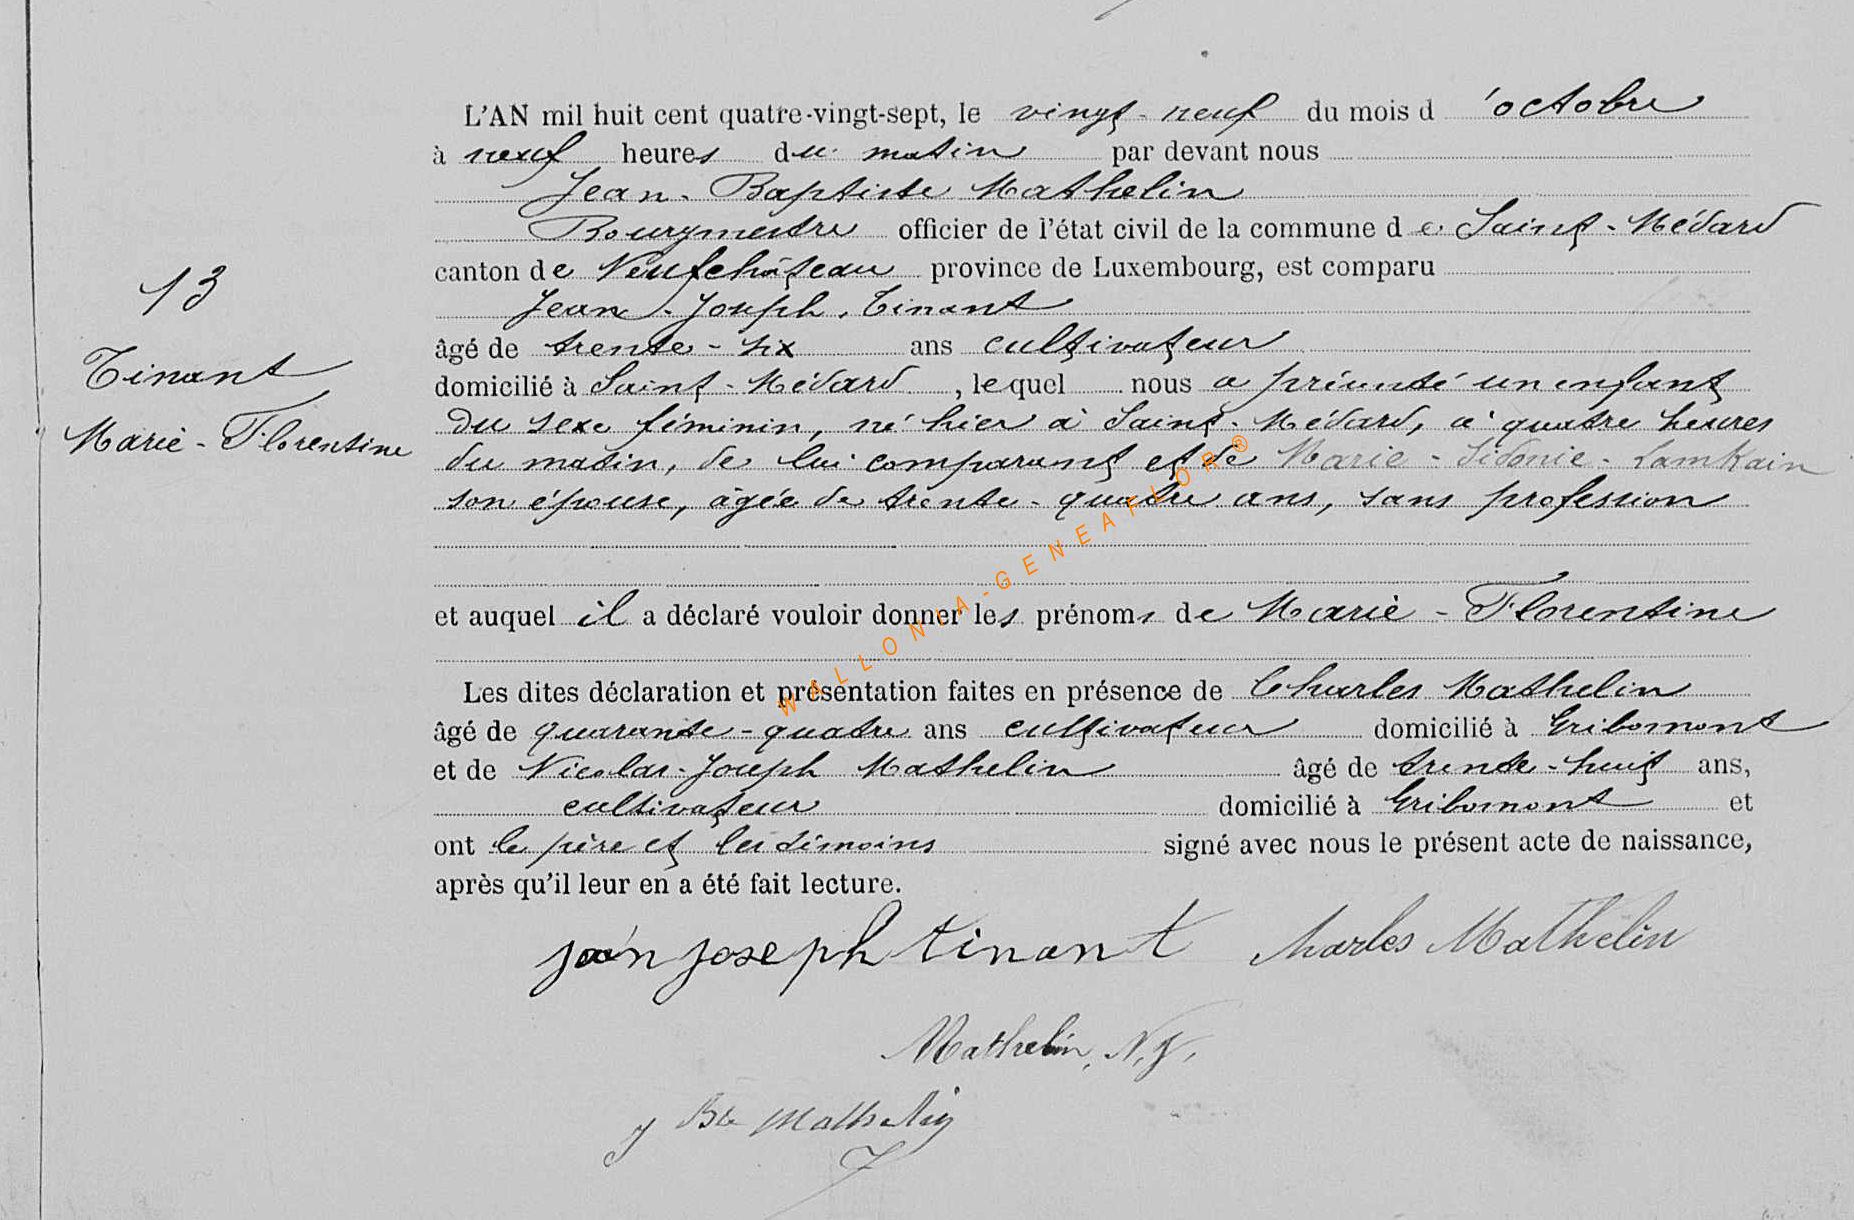 L'AN mil huit cent quatre-vingt-sept, le vingt-neuf du mois d'octobre
à neuf heures du matin par devant nous
Jean-Baptiste Mathelin
Bourgmestre officier de l'état civil de la commune de Saint-Médard
canton de Neufchâteau province de Luxembourg, est comparu
13
Jean-Joseph Tinant
âgé de trente-six ans cultivateur
Tinant
domicilié à Saint-Médard, lequel nous a présenté un enfant
Marie-Florentine
du sexe féminin, né hier à Saint-Médard, à quatre heures
du matin, de lui comparant et de Marie-Sidonie-Lamkain
son épouse, âgée de trente-quatre ans, sans profession
et auquel il a déclaré vouloir donner les prénoms de Marie-Florentine
WALLONIA-GENEAFLOR®
Les dites déclaration et présentation faites en présence de Charles Mathelin
âgé de quarante-quatre ans cultivateur domicilié à Gribomont
et de Nicolas-Joseph Mathelin âgé de trente-huit ans,
cultivateur domicilié à Gribomont et
ont le père et les témoins signé avec nous le présent acte de naissance,
après qu'il leur en a été fait lecture.
jean joseph tinant Charles Mathelin
Mathelin, N. J.
J Bte Mathelin